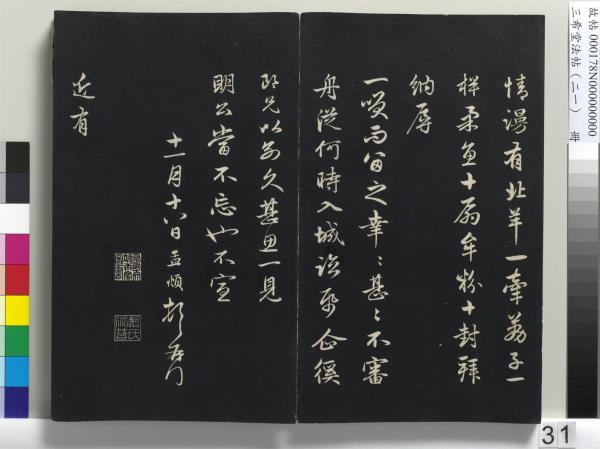 故帖 000178N000000000
三希堂法帖（二一） 冊
情謾有北羊一牽藕子一
样柔魚十扇牟粉十封拜
納辱
一笑而留之幸〻甚〻不審
舟從何時入城 企徯
兄以别久甚思一見
明公當不忘也不宣
十一月十六日孟頫頓首
近有
31